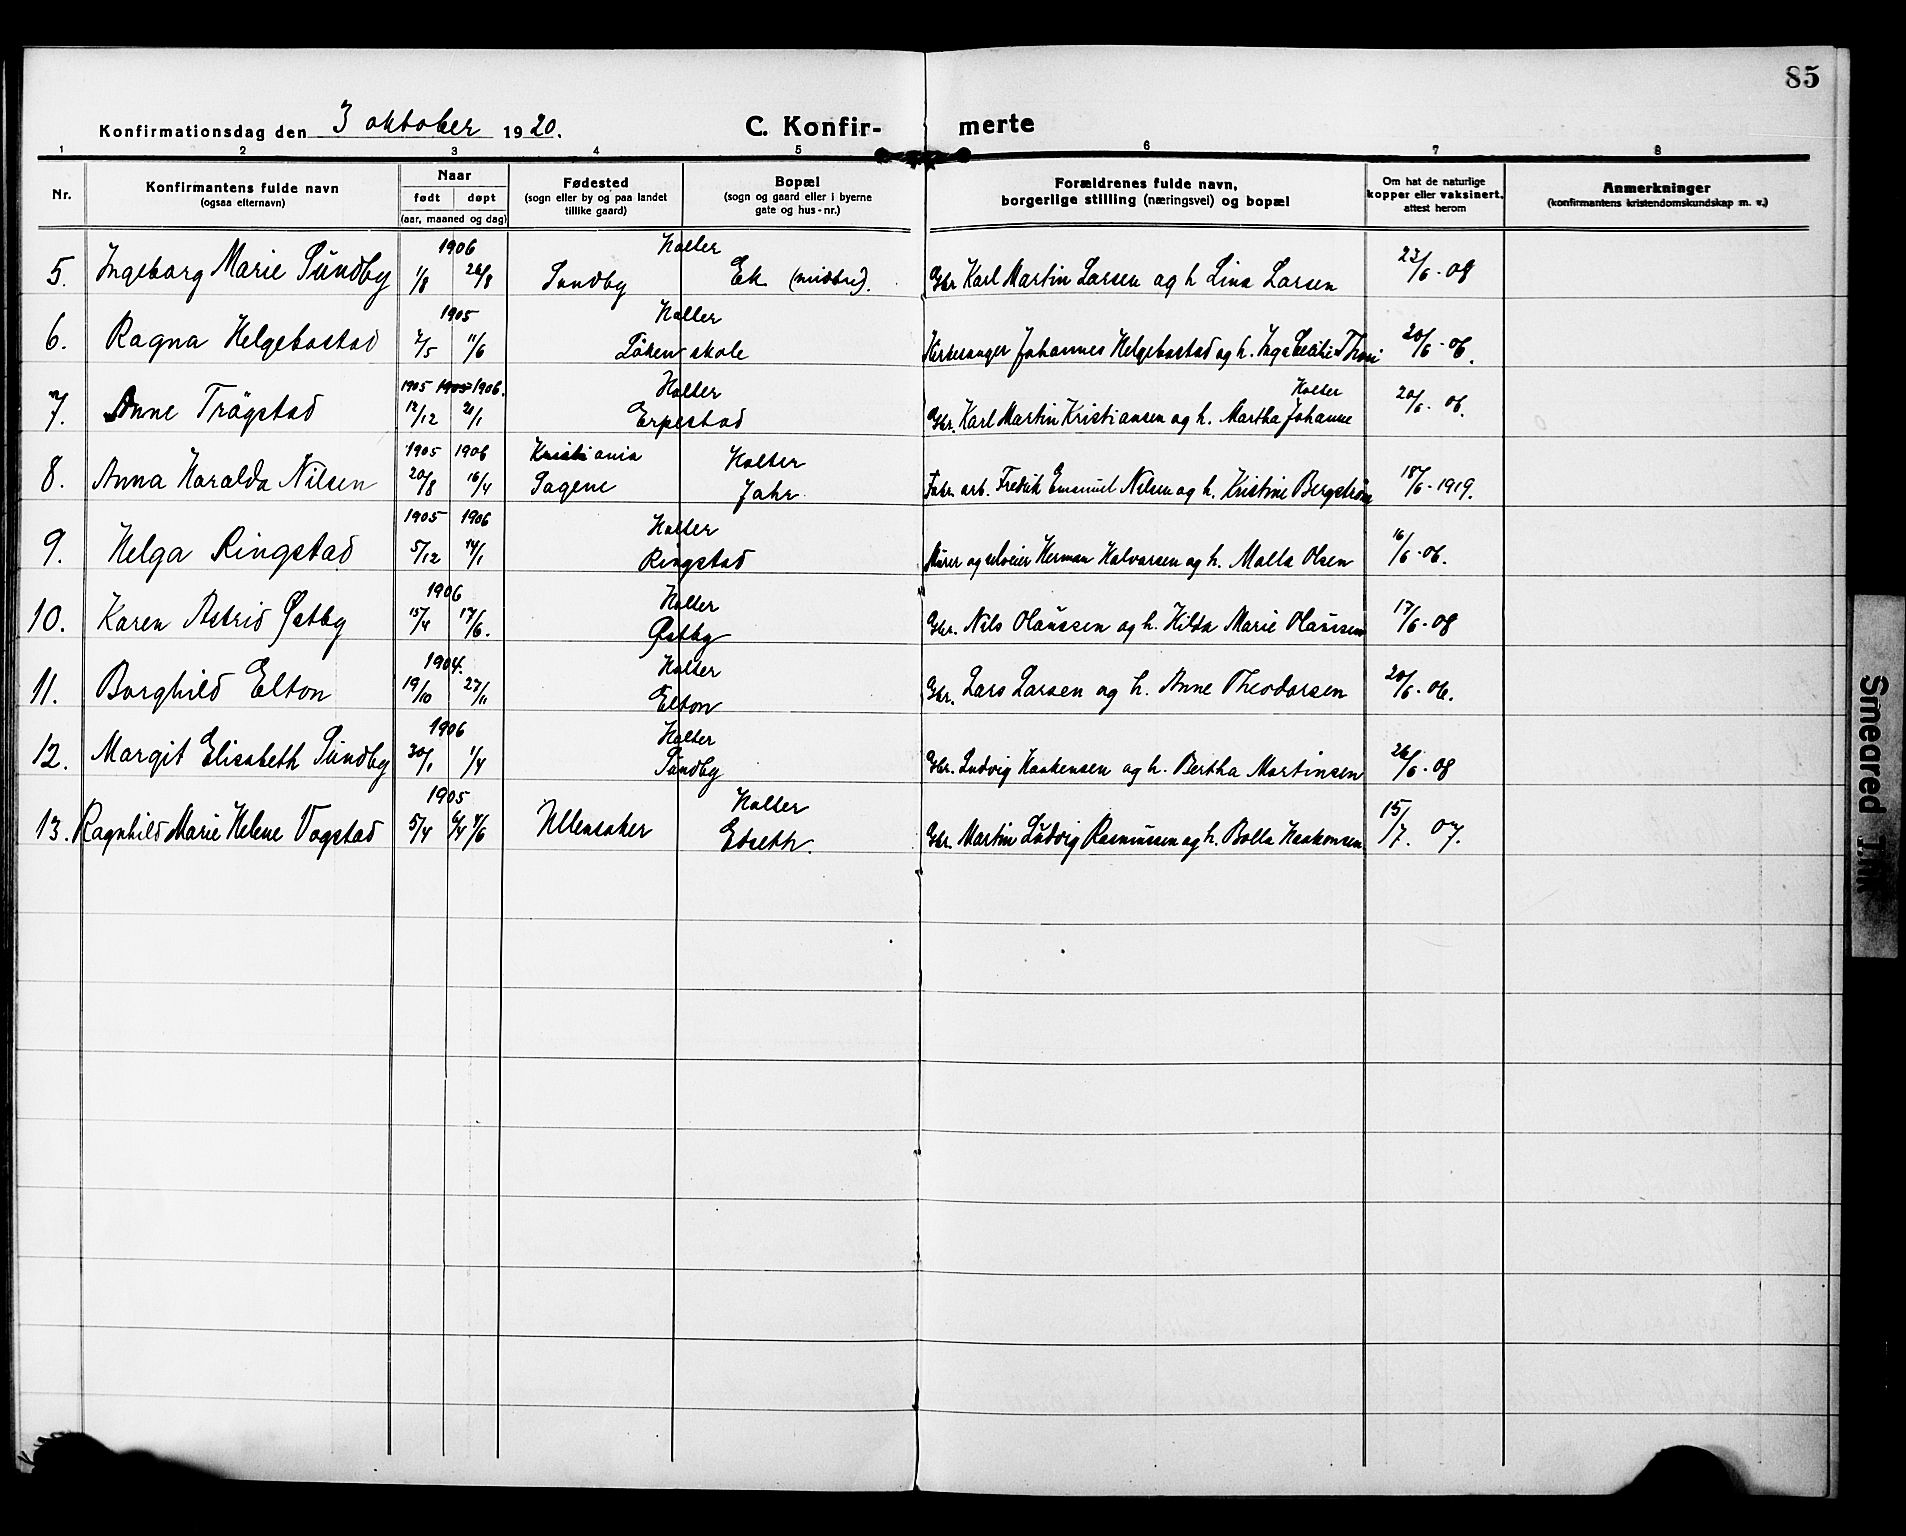 85
Konfirmationsdag den 3 oktober 1920.
C. Konfir- merte
1 2 3 4 5 6 7 8
Nr.
Konfirmantens fulde navn
(ogsaa efternavn)
Naar
født døpt
(aar, maaned og dag)
Fødested
(sogn eller by og paa landet
tillike gaard)
Bopæl
(sogn og gaard eller i byerne
gate og hus-nr.)
Forældrenes fulde navn,
borgerlige stilling (næringsvei) og bopæl
Om hat de naturlige
kopper eller vaksinert,
attest herom
Anmerkninger
(konfirmantens kristendomskundskap m. v.)
1906 Holter
5. Ingeborg Marie Sundby 1/8 26/8 Sundby Ek (midtre). Gbr Karl Martin Larsen og h Lina Larsen 23/6-08
1905 Holter
6. Ragna Helgebostad 2/5 11/6 Løken skole Kirkesanger Johannes Helgebostad og h. Inga Cecilie 20/6-06.
1905 1905 1906. Holter Holter
7. Anne Trøgstad 12/12 21/1 Erpestad Gbr. Karl Martin Kristiansen og h. Martha Johanne 20/6-06.
1905 1906 Kristiania Holter
8. Anna Haralda Nilsen 20/8 16/4 Sagene Jahr Fabr. arb. Fredrik Emanuel Nilsen og h. Kristine Bergstrøm 18/6-1919.
1905 1906 Holter
9. Helga Ringstad 5/12 14/1 Ringstad Murer og selveier Herman Halvorsen og h. Malla Olsen 16/6-06.
1906 Holter
10. Karen Astrid Østby 15/4 17/6. Østby Gbr. Nils Olaussen og h. Hilda Marie Olaussen 17/6-08
1904. Holter
11. Borghild Elton 19/10 27/11 Elton Gbr. Lars Larsen og h. Anne Theodorsen 20/6-06.
1906 Holter
12. Margit Elisabeth Sundby 30/1 1/4 Sundby Gbr. Ludvig Haakensen og h. Bertha Martinsen 26/6-08
1905 Holter
13. Ragnhild Marie Helene Vogstad 5/4 Ullensaker Edseth. Gbr. Martin Ludvig Rasmussen og h. Bolla Haakonsen 15/7.07.
Smeared Ink